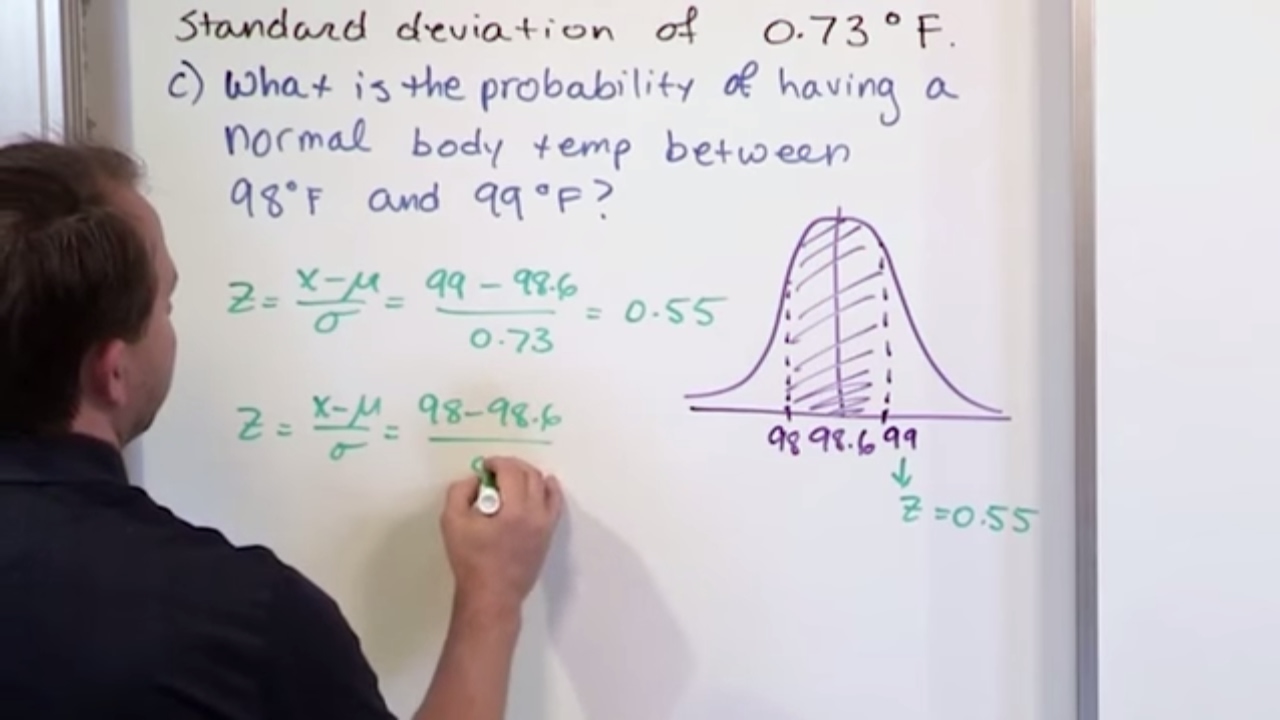 Standard deviation of 0.73°F.
c) What is the probability of having a
normal body temp between
98°F and 99°F?
Z = x-μ/σ = 99 - 98.6/0.73 = 0.55
Z = x-μ/σ = 98-98.6
98 98.6 99
↓
Z = 0.55